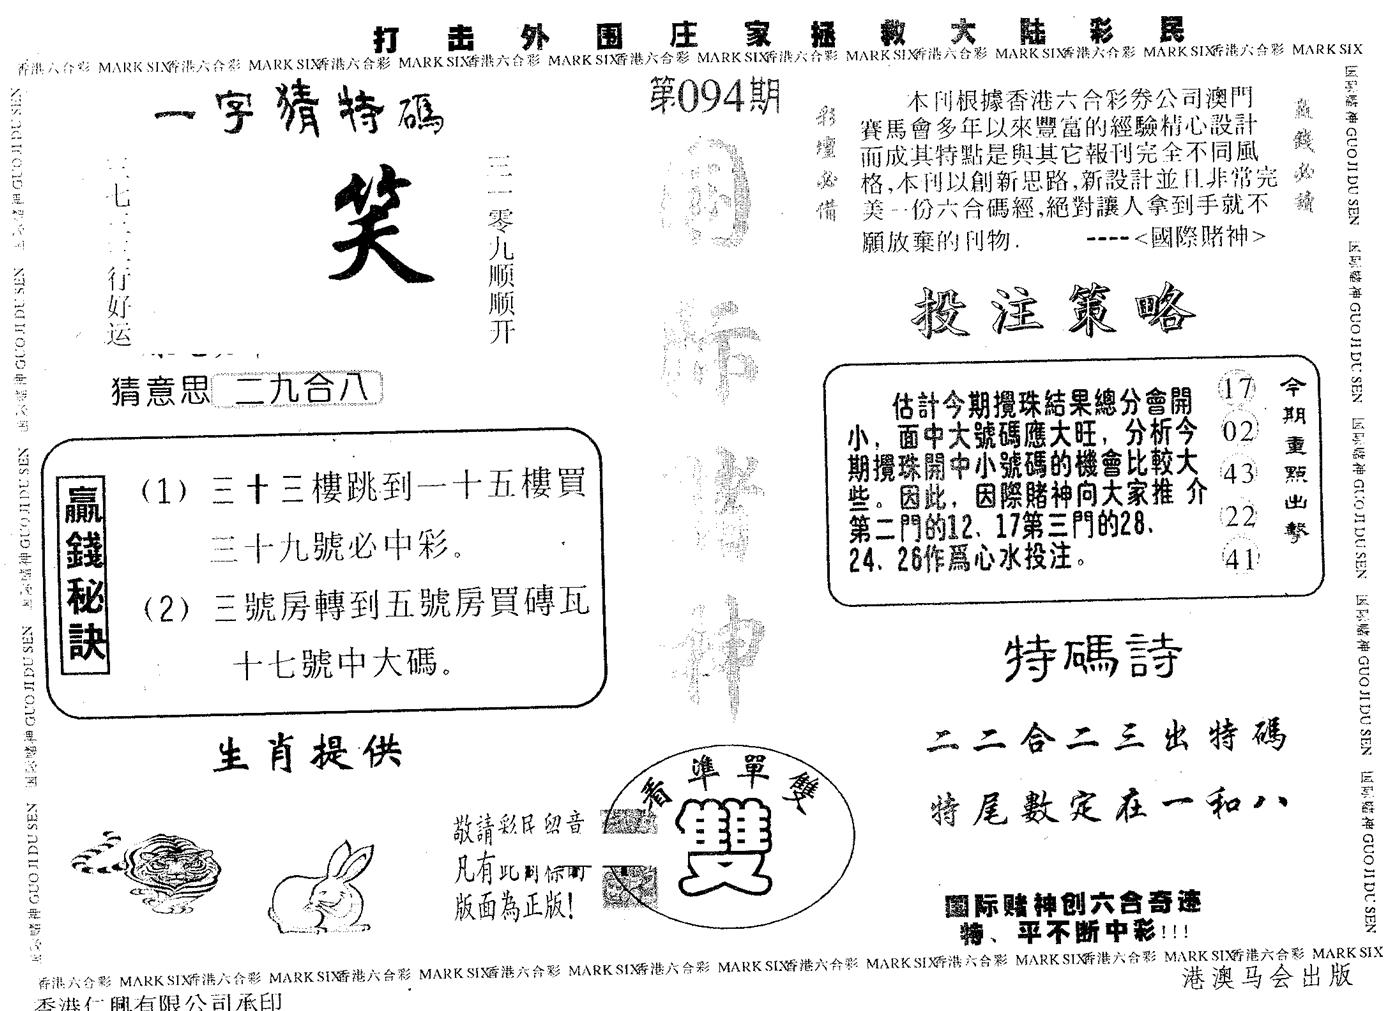 打击外围庄家拯救大陆彩民
香港六合彩 MARK SIX香港六合彩 MARK SIX香港六合彩 MARK SIX香港六合彩 MARK SIX香港六合彩 MARK SIX香港六合彩 MARK SIX香港六合彩 MARK SIX香港六合彩 MARK SIX香港六合彩 MARK SIX
一字猜特碼
笑
三一零九顺顺开
行好运
猜意思 二九合八
第094期
彩壇必備
本刊根據香港六合彩券公司澳門
賽馬會多年以來豐富的經驗精心設計
而成其特點是與其它報刊完全不同風
格,本刊以創新思路,新設計並且非常完
美一份六合碼經,絕對讓人拿到手就不
願放棄的刊物.　----<國際賭神>
贏錢必讀
投注策略
估計今期攪珠結果總分會開
小，面中大號碼應大旺，分析今
期攪珠開中小號碼的機會比較大
些。因此，因際賭神向大家推介
第二門的12、17第三門的28、
24、26作爲心水投注。
17
02
43
22
41
今期重點出擊
贏錢秘訣
(1) 三十三樓跳到一十五樓買
三十九號必中彩。
(2) 三號房轉到五號房買磚瓦
十七號中大碼。
生肖提供
敬請彩民留音
凡有此
版面為正版!
看準單雙
雙
特碼詩
二二合二三出特碼
特尾數定在一和八
國际赌神创六合奇迹
特、平不断中彩!!!
香港六合彩 MARK SIX香港六合彩 MARK SIX香港六合彩 MARK SIX香港六合彩 MARK SIX香港六合彩 MARK SIX香港六合彩 MARK SIX香港六合彩 MARK SIX香港六合彩 MARK SIX香港六合彩 MARK SIX
港澳马会出版
香港仁興有限公司承印